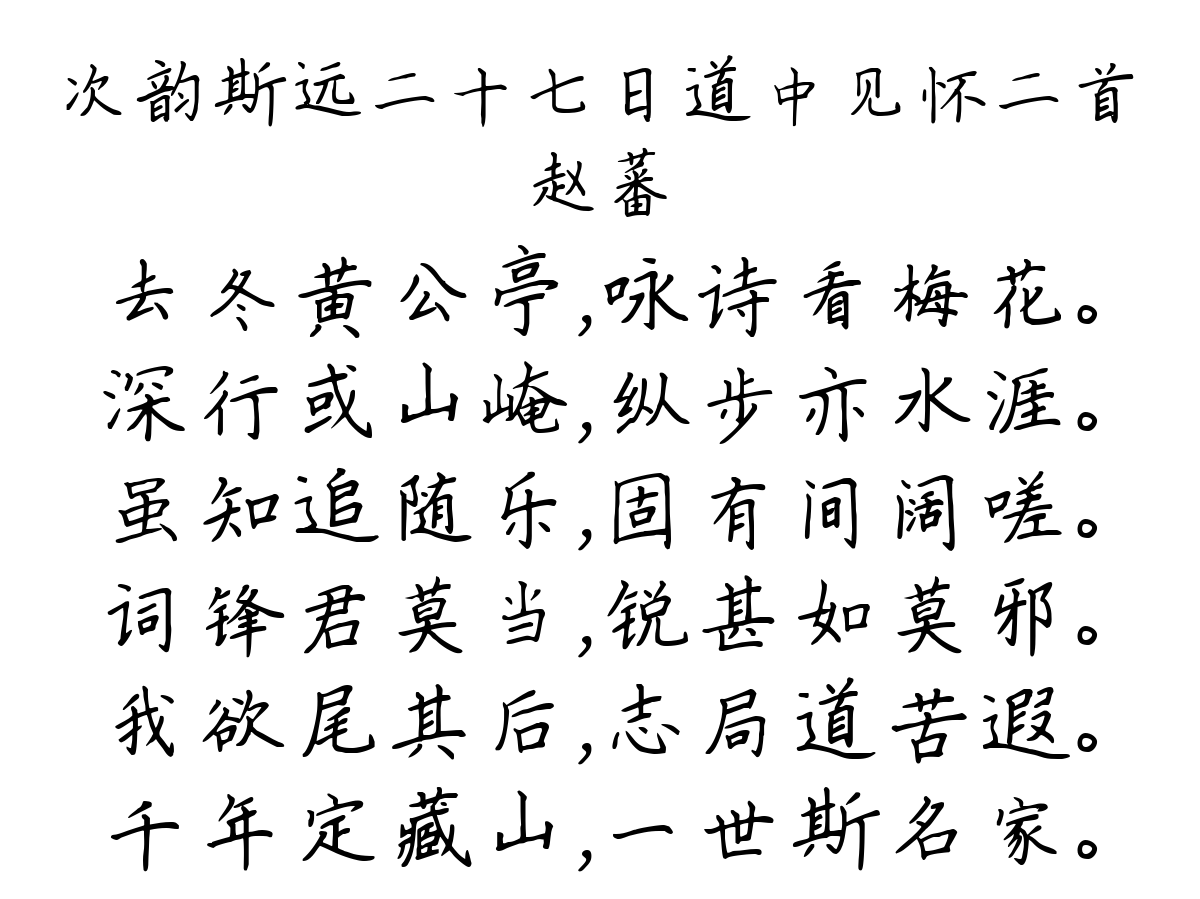 次韵斯远二十七日道中见怀二首
赵蕃
去冬黄公亭,咏诗看梅花。
深行或山崦,纵步亦水涯。
虽知追随乐,固有间阔嗟。
词锋君莫当,锐甚如莫邪。
我欲尾其后,志局道苦遐。
千年定藏山,一世斯名家。